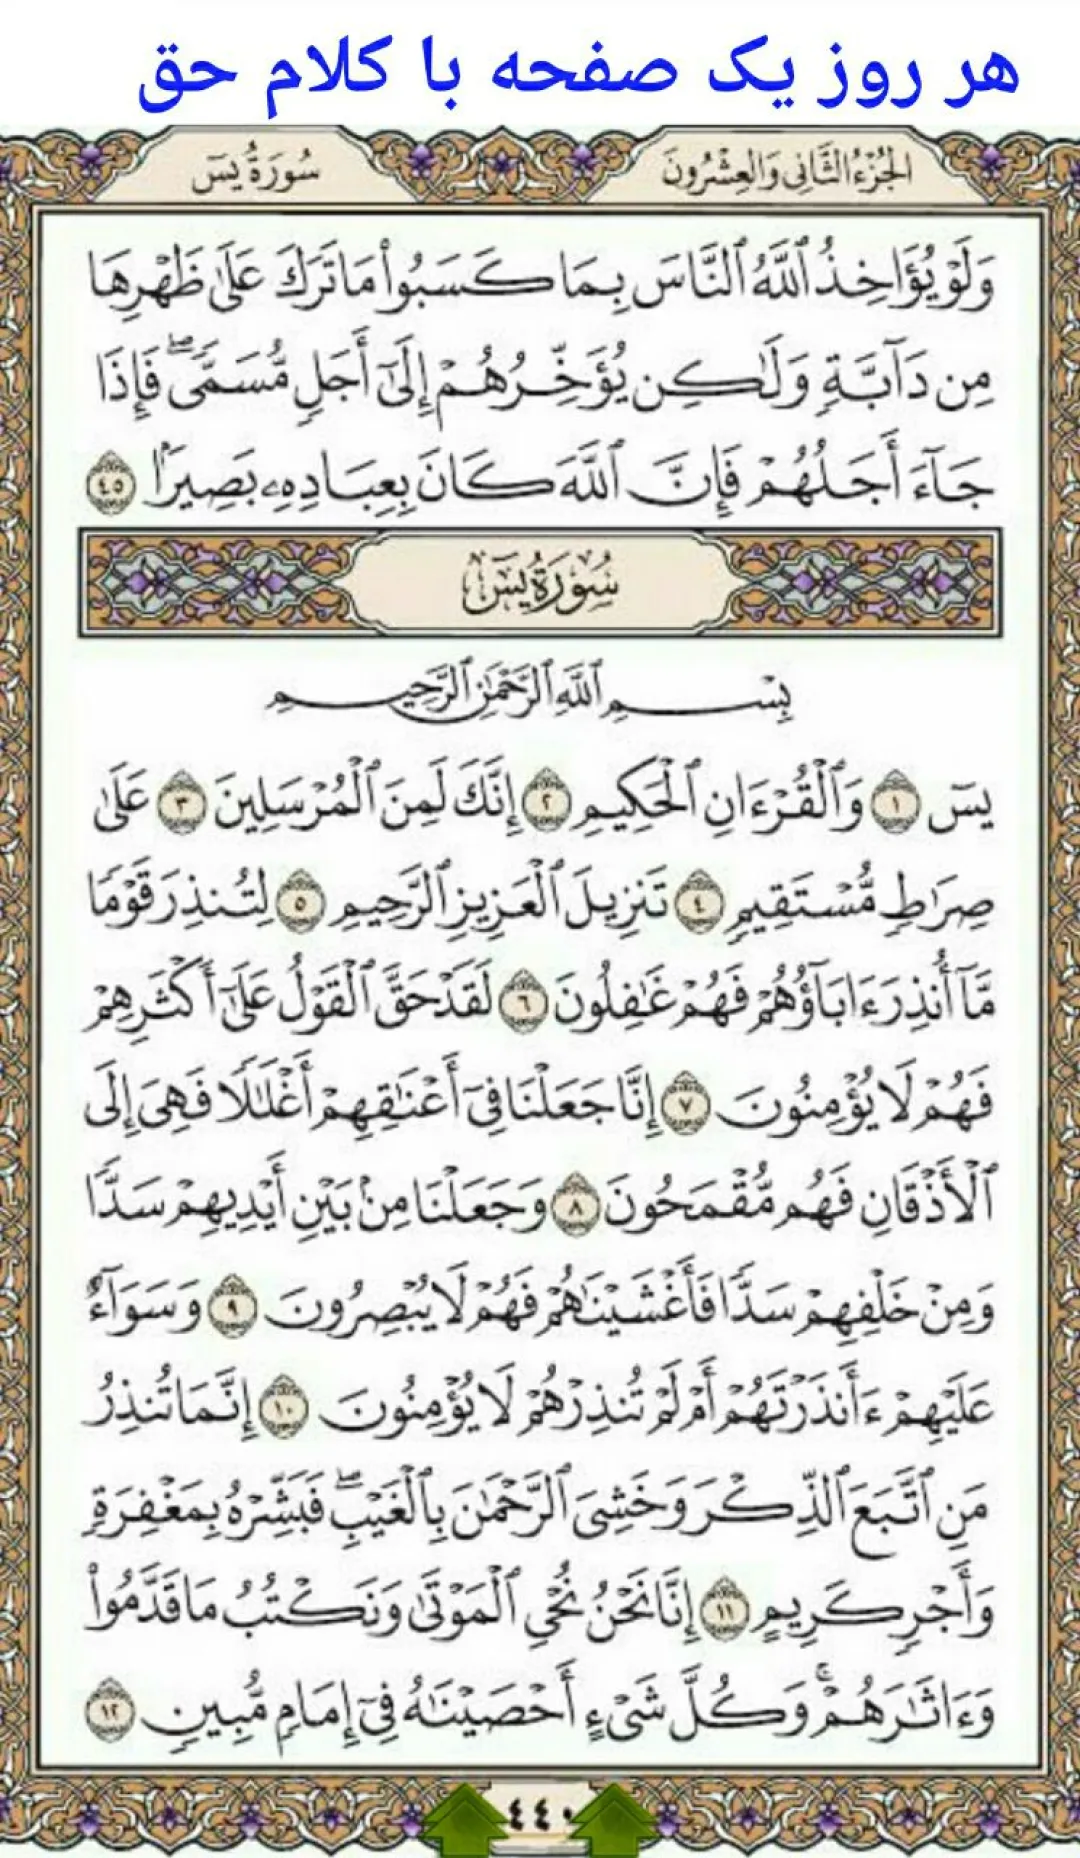 هر روز یک صفحه با کلام حق
الجُزْءُ الثَّانِي وَالعِشْرُونَ
سُورَةُ يسٓ
وَلَوْ يُؤَاخِذُ ٱللَّهُ ٱلنَّاسَ بِمَا كَسَبُوا۟ مَا تَرَكَ عَلَىٰ ظَهْرِهَا
مِن دَآبَّةٍ وَلَٰكِن يُؤَخِّرُهُمْ إِلَىٰٓ أَجَلٍ مُّسَمًّى ۖ فَإِذَا
جَآءَ أَجَلُهُمْ فَإِنَّ ٱللَّهَ كَانَ بِعِبَادِهِۦ بَصِيرًۢا ٤٥
سُورَةُ يسٓ
بِسْمِ ٱللَّهِ ٱلرَّحْمَٰنِ ٱلرَّحِيمِ
يسٓ ١ وَٱلْقُرْءَانِ ٱلْحَكِيمِ ٢ إِنَّكَ لَمِنَ ٱلْمُرْسَلِينَ ٣ عَلَىٰ
صِرَٰطٍ مُّسْتَقِيمٍ ٤ تَنزِيلَ ٱلْعَزِيزِ ٱلرَّحِيمِ ٥ لِتُنذِرَ قَوْمًا
مَّآ أُنذِرَ ءَابَآؤُهُمْ فَهُمْ غَٰفِلُونَ ٦ لَقَدْ حَقَّ ٱلْقَوْلُ عَلَىٰٓ أَكْثَرِهِمْ
فَهُمْ لَا يُؤْمِنُونَ ٧ إِنَّا جَعَلْنَا فِىٓ أَعْنَٰقِهِمْ أَغْلَٰلًا فَهِىَ إِلَى
ٱلْأَذْقَانِ فَهُم مُّقْمَحُونَ ٨ وَجَعَلْنَا مِنۢ بَيْنِ أَيْدِيهِمْ سَدًّا
وَمِنْ خَلْفِهِمْ سَدًّا فَأَغْشَيْنَٰهُمْ فَهُمْ لَا يُبْصِرُونَ ٩ وَسَوَآءٌ
عَلَيْهِمْ ءَأَنذَرْتَهُمْ أَمْ لَمْ تُنذِرْهُمْ لَا يُؤْمِنُونَ ١٠ إِنَّمَا تُنذِرُ
مَنِ ٱتَّبَعَ ٱلذِّكْرَ وَخَشِىَ ٱلرَّحْمَٰنَ بِٱلْغَيْبِ ۖ فَبَشِّرْهُ بِمَغْفِرَةٍ
وَأَجْرٍ كَرِيمٍ ١١ إِنَّا نَحْنُ نُحْىِ ٱلْمَوْتَىٰ وَنَكْتُبُ مَا قَدَّمُوا۟
وَءَاثَٰرَهُمْ ۚ وَكُلَّ شَىْءٍ أَحْصَيْنَٰهُ فِىٓ إِمَامٍ مُّبِينٍ ١٢
٤٤٠